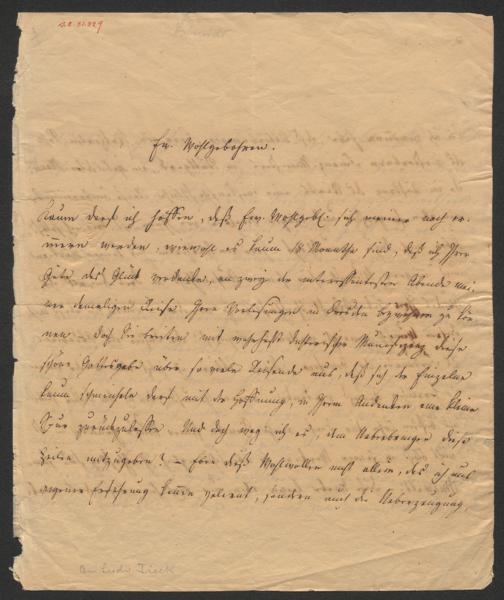 Ew. Wohlgebohren.
Kaum darf ich hoffen, daß Ew. Wohlgeb. sich meiner noch er-
innern werden, wiewohl es kaum 18 Monathe sind, daß ich Ihrer
Güte das Glück verdanke, an zwey der interessantesten Abende mei-
ner damaligen Reise Ihren Vorlesungen in Dresden beywohnen zu kön-
nen. Doch Sie breiten mit wahrhaft diese
schöne Gottesgabe über so viele Reisende aus, daß sich der Einzelne
kaum schmeicheln darf mit der Hoffnung, in Ihrem Andenken eine kleine
Spur zurückzulassen. Und doch wag' ich es, dem Ueberbringer diese
Zeilen mitzugeben? – Eben dieß Wohlwollen nicht allein, das ich aus
eigener Erfahrung kennen gelernt, sondern auch die Ueberzeugung,
An Ludw. Tieck